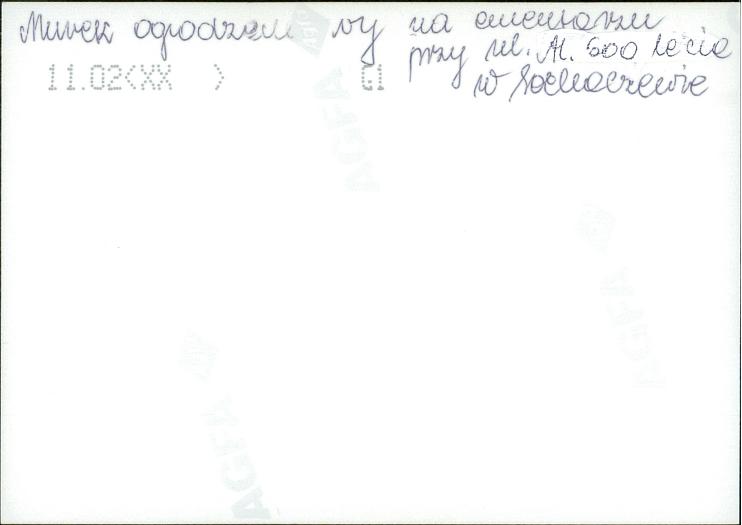 Murek ogrodzeniowy na cmentarzu
przy ul. Al. 600 lecia
11.02<XX > G1
w Sochaczewie
AGFA
AGFA
AGFA